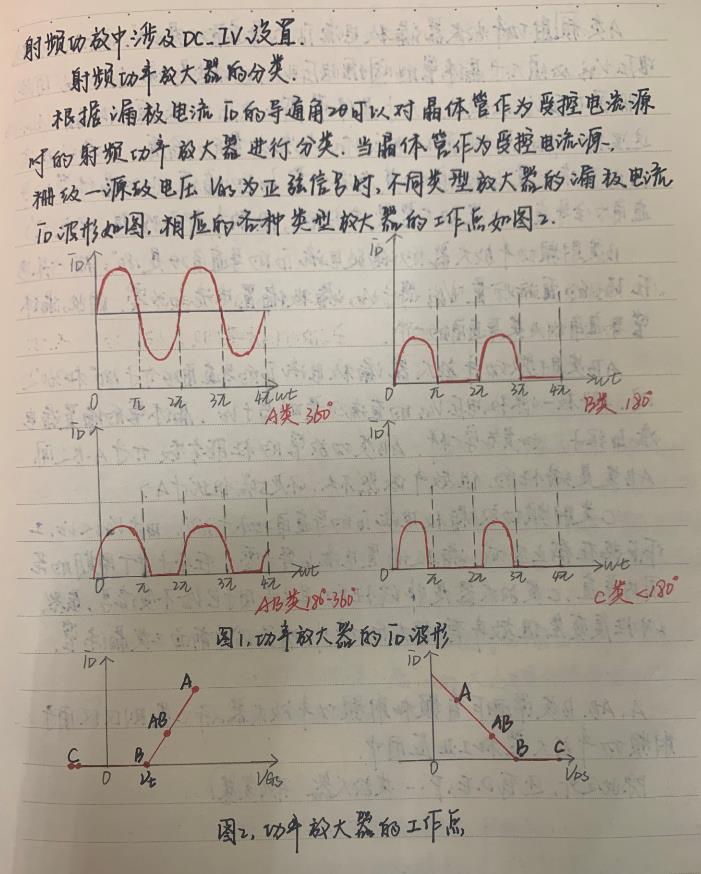 射频功放中涉及DC-IV设置.
射频功率放大器的分类
根据漏极电流 ID的导通角2θ可以对晶体管作为受控电流源
时的射频功率放大器进行分类. 当晶体管作为受控电流源.
栅级一源极电压 VGS为正弦信号时, 不同类型放大器的漏极电流
ID波形如图. 相应的各种类型放大器的工作点如图2.
ID
ID
0 π 2π 3π 4π wt
0 π 2π 3π 4π wt
A类 360°
B类 180°
ID
ID
0 π 2π 3π 4π wt
0 π 2π 3π 4π wt
AB类 180°-360°
C类 <180°
图1. 功率放大器的 ID 波形
ID
A
AB
C
B
0 Vt VGS
ID
A
AB
B
C
0 VDS
图2. 功率放大器的工作点